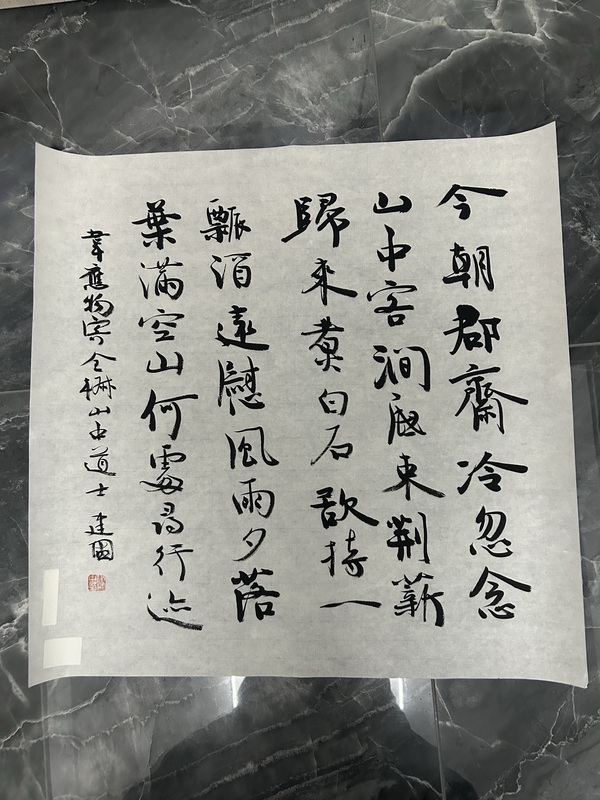 今朝郡齋冷忽念
山中客澗底束荊薪
歸來煮白石欲持一
瓢酒遠慰風雨夕落
葉滿空山何處尋行迹
韋應物寄全椒山中道士 建國